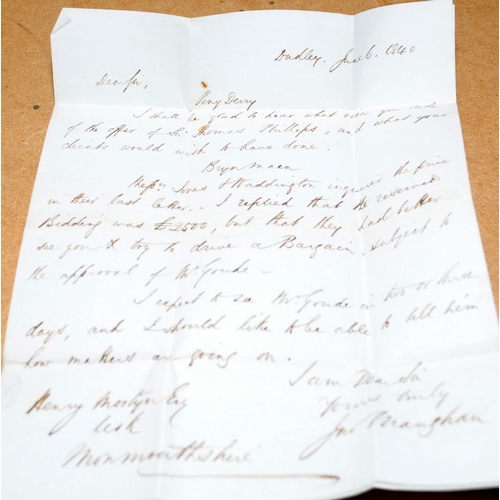 Dudley, June 6. 1840
Dear Sir,
Peny Derry
I shall be glad to hear what ever you made
of the offer of Sir Thomas Phillips, and what your
clients would wish to have done.
Bryn Maen
Messrs Jones & Waddington inquired the price
in their last letter. I replied that the reserved
Bidding was £2500, but that they had better
see you & try to drive a Bargain, subject to
the approval of Mr Goude -
I expect to see Mr Goude in two or three
days, and I should like to be able to tell him
how matters are going on.
I am Dear Sir
Yours truly
Jno Maughan
Henry Mostyn Esq
Usk
Monmouthshire